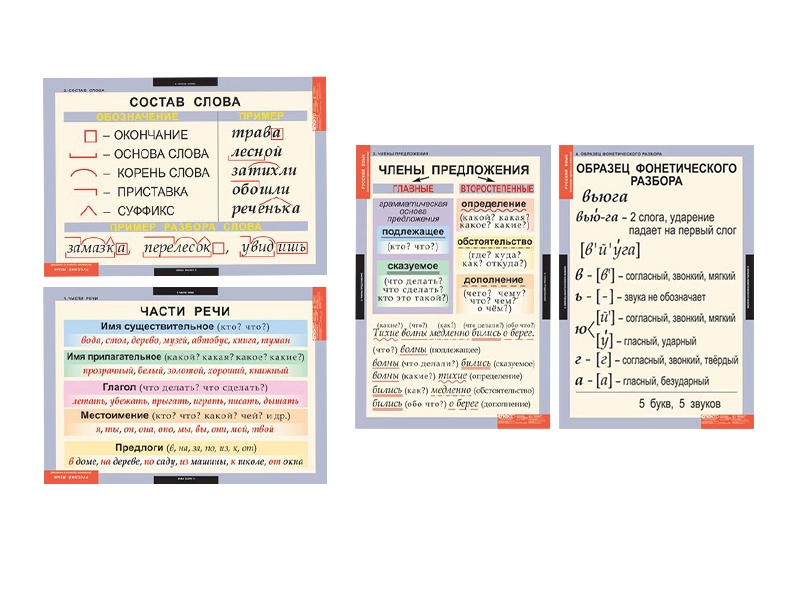 2. СОСТАВ СЛОВА
СОСТАВ СЛОВА
ОБОЗНАЧЕНИЕ ПРИМЕР
– ОКОНЧАНИЕ трава
– ОСНОВА СЛОВА лесной
– КОРЕНЬ СЛОВА затихли
– ПРИСТАВКА обошли
– СУФФИКС реченька
ПРИМЕР РАЗБОРА СЛОВА
замазка, перелесок, увидишь
РУССКИЙ ЯЗЫК
1. ЧАСТИ РЕЧИ
ЧАСТИ РЕЧИ
Имя существительное (кто? что?)
вода, стол, дерево, музей, автобус, книга, туман
Имя прилагательное (какой? какая? какое? какие?)
прозрачный, белый, золотой, хороший, книжный
Глагол (что делать? что сделать?)
летать, убежать, прыгать, играть, писать, дышать
Местоимение (кто? что? какой? чей? и др.)
я, ты, он, она, оно, мы, вы, они, мой, твой
Предлоги (в, на, за, по, из, к, от)
в доме, на дереве, по саду, из машины, к школе, от окна
РУССКИЙ ЯЗЫК
РУССКИЙ ЯЗЫК
3. ЧЛЕНЫ ПРЕДЛОЖЕНИЯ
ЧЛЕНЫ ПРЕДЛОЖЕНИЯ
ГЛАВНЫЕ ВТОРОСТЕПЕННЫЕ
грамматическая
основа
предложения
подлежащее
(кто? что?)
сказуемое
(что делать?
что сделать?
кто это такой?)
определение
(какой? какая?
какое? какие?)
обстоятельство
(где? куда?
как? откуда?)
дополнение
(чего? чему?
что? чем?
о чём?)
(какие?) (что?) (как?) (что делали?) (обо что?)
Тихие волны медленно бились о берег.
(что?) волны (подлежащее)
волны (что делали?) бились (сказуемое)
волны (какие?) тихие (определение)
бились (как?) медленно (обстоятельство)
бились (обо что?) о берег (дополнение)
РУССКИЙ ЯЗЫК
4. ОБРАЗЕЦ ФОНЕТИЧЕСКОГО РАЗБОРА
ОБРАЗЕЦ ФОНЕТИЧЕСКОГО
РАЗБОРА
вьюга
вью́-га – 2 слога, ударение
падает на первый слог
[в'й'у́га]
в – [в'] – согласный, звонкий, мягкий
ь – [-] – звука не обозначает
ю [й'] – согласный, звонкий, мягкий
[у́] – гласный, ударный
г – [г] – согласный, звонкий, твёрдый
а – [а] – гласный, безударный
5 букв, 5 звуков